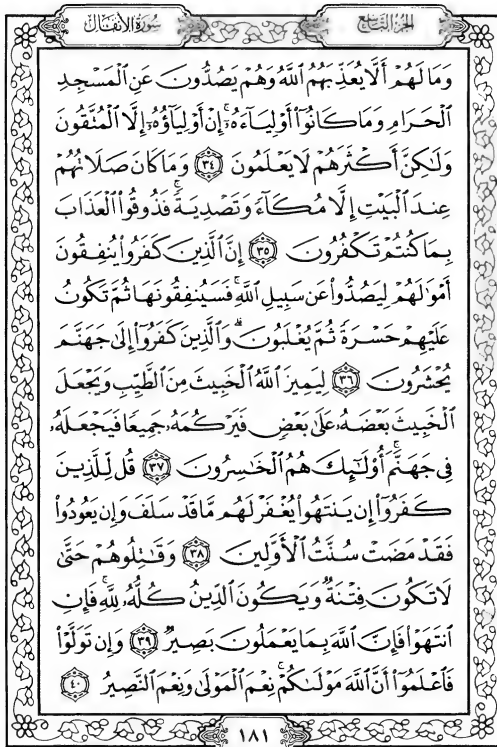 سُورَةُ الأَنفَال الجُزءُ التَّاسِعُ
وَمَا لَهُمْ أَلَّا يُعَذِّبَهُمُ ٱللَّهُ وَهُمْ يَصُدُّونَ عَنِ ٱلْمَسْجِدِ
ٱلْحَرَامِ وَمَا كَانُوٓا۟ أَوْلِيَآءَهُۥٓ ۚ إِنْ أَوْلِيَآؤُهُۥٓ إِلَّا ٱلْمُتَّقُونَ
وَلَـٰكِنَّ أَكْثَرَهُمْ لَا يَعْلَمُونَ ٣٤ وَمَا كَانَ صَلَاتُهُمْ
عِندَ ٱلْبَيْتِ إِلَّا مُكَآءً وَتَصْدِيَةً ۚ فَذُوقُوا۟ ٱلْعَذَابَ
بِمَا كُنتُمْ تَكْفُرُونَ ٣٥ إِنَّ ٱلَّذِينَ كَفَرُوا۟ يُنفِقُونَ
أَمْوَٰلَهُمْ لِيَصُدُّوا۟ عَن سَبِيلِ ٱللَّهِ ۚ فَسَيُنفِقُونَهَا ثُمَّ تَكُونُ
عَلَيْهِمْ حَسْرَةً ثُمَّ يُغْلَبُونَ ۗ وَٱلَّذِينَ كَفَرُوٓا۟ إِلَىٰ جَهَنَّمَ
يُحْشَرُونَ ٣٦ لِيَمِيزَ ٱللَّهُ ٱلْخَبِيثَ مِنَ ٱلطَّيِّبِ وَيَجْعَلَ
ٱلْخَبِيثَ بَعْضَهُۥ عَلَىٰ بَعْضٍ فَيَرْكُمَهُۥ جَمِيعًا فَيَجْعَلَهُۥ
فِى جَهَنَّمَ ۚ أُو۟لَـٰٓئِكَ هُمُ ٱلْخَـٰسِرُونَ ٣٧ قُل لِّلَّذِينَ
كَفَرُوٓا۟ إِن يَنتَهُوا۟ يُغْفَرْ لَهُم مَّا قَدْ سَلَفَ وَإِن يَعُودُوا۟
فَقَدْ مَضَتْ سُنَّتُ ٱلْأَوَّلِينَ ٣٨ وَقَـٰتِلُوهُمْ حَتَّىٰ
لَا تَكُونَ فِتْنَةٌ وَيَكُونَ ٱلدِّينُ كُلُّهُۥ لِلَّهِ ۚ فَإِنِ
ٱنتَهَوْا۟ فَإِنَّ ٱللَّهَ بِمَا يَعْمَلُونَ بَصِيرٌ ٣٩ وَإِن تَوَلَّوْا۟
فَٱعْلَمُوٓا۟ أَنَّ ٱللَّهَ مَوْلَىٰكُمْ ۚ نِعْمَ ٱلْمَوْلَىٰ وَنِعْمَ ٱلنَّصِيرُ ٤٠
١٨١